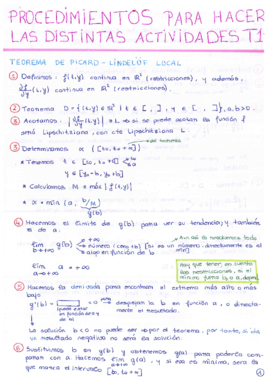 PROCEDIMIENTOS PARA HACER
LAS DISTINTAS ACTIVIDADES T1
TEOREMA DE PICARD-LINDELÖF LOCAL
① Definimos f(t,y) continua en ℝ² (restricciones), y además,
∂f/∂y (t,y) continua en ℝ² (restricciones).
② Teorema D = {(t,y) ∈ ℝ² | t ∈ [ , ], y ∈ [ , ]}, a,b>0.
③ Acotamos. |∂f/∂y (t,y)| ≤ L → si se puede acotar la función f
será Lipschitziana, con cte Lipschitziana L.
③ Determinamos α ([t₀, t₀+α])
* Tenemos t ∈ [t₀, t₀+a]
y ∈ [y₀-b, y₀+b]
* Calculamos M = máx |f(t,y)|
* α = mín {a, b/M}
g(b)
④ Hacemos el límite de g(b) para ver su tendencia, y también
el de a:
lím g(b) =
b→+∞
+∞
número (cmp +b)
algo en función de b
lím a = +∞
a→+∞
Hay que tener en cuenta
las restricciones, si el
mínimo fuera b, a depend.
⑤ Hacemos la derivada para encontrar el extremo más alto o más
bajo
g'(b) = = 0 → despejar la b en función a, o directa-
mente el resultado.
La solución b<0 no puede ser x por el teorema, por tanto, si da
un resultado negativo no será la solución.
⑥ Sustituimos b en g(b) y obtenemos g(a) para poderla com-
parar con a. Hacemos lím g(a), y si eso es mínimo, será la
que marca el intervalo [t₀, t₀+α]
①